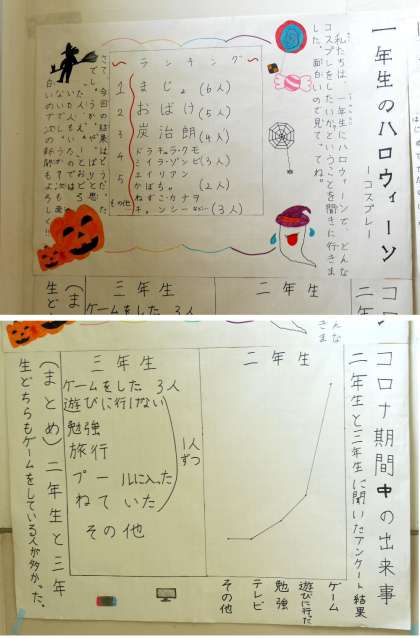 一年生のハロウィーン
ーコスプレー
私たちは、一年生にハロウィーンで、どんな
コスプレをしたいか、ということを聞きに行きま
した。面白いので見て、てね。
〜ランキング〜
1 まじょ(6人)
2 おばけ(5人)
3 炭治朗(4人)
4 ドラキュラ・クモ
ミイラ・ゾンビ(3人)
5 エイリアン
かぼちゃ(2人)
その他 ねずこ・カナヲ
キョンシー(3人)
さて、今回の結果はどうだった
三年生
二年生
ゲームをした 3人
コロナ期間中の出来事
二年生と三年生に聞いたアンケート結果
二年生
ゲーム
遊びに行だ
勉強
テレビ
その他
三年生
ゲームをした 3人
遊びに行けない
勉強
旅行
プールに入った
ねていた
1人ずつ
その他
(まとめ)二年生と三年
生どちらもゲームをしている人が多かった。